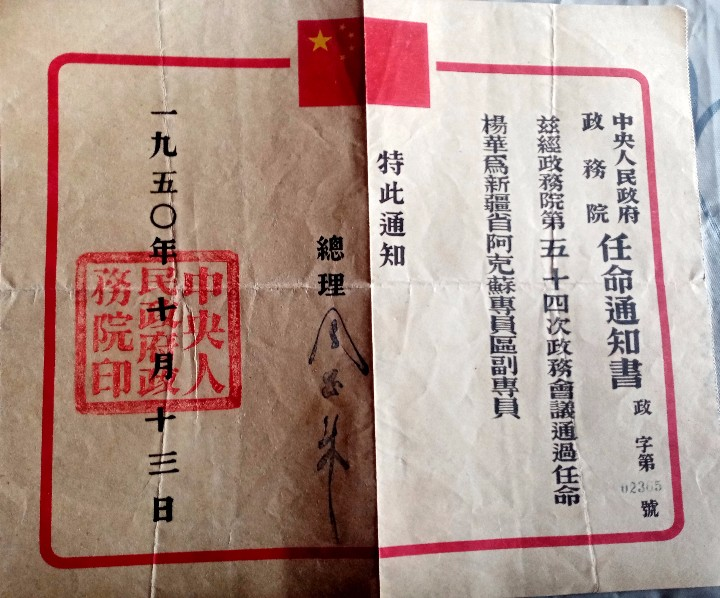 中央人民政府
政務院
任命通知書
政字第02365號
茲經政務院第五十四次政務會議通過任命
楊華爲新疆省阿克蘇專員區副專員
特此通知
總理 周恩來
一九五〇年十月十三日
中央人
民政府政
務院印